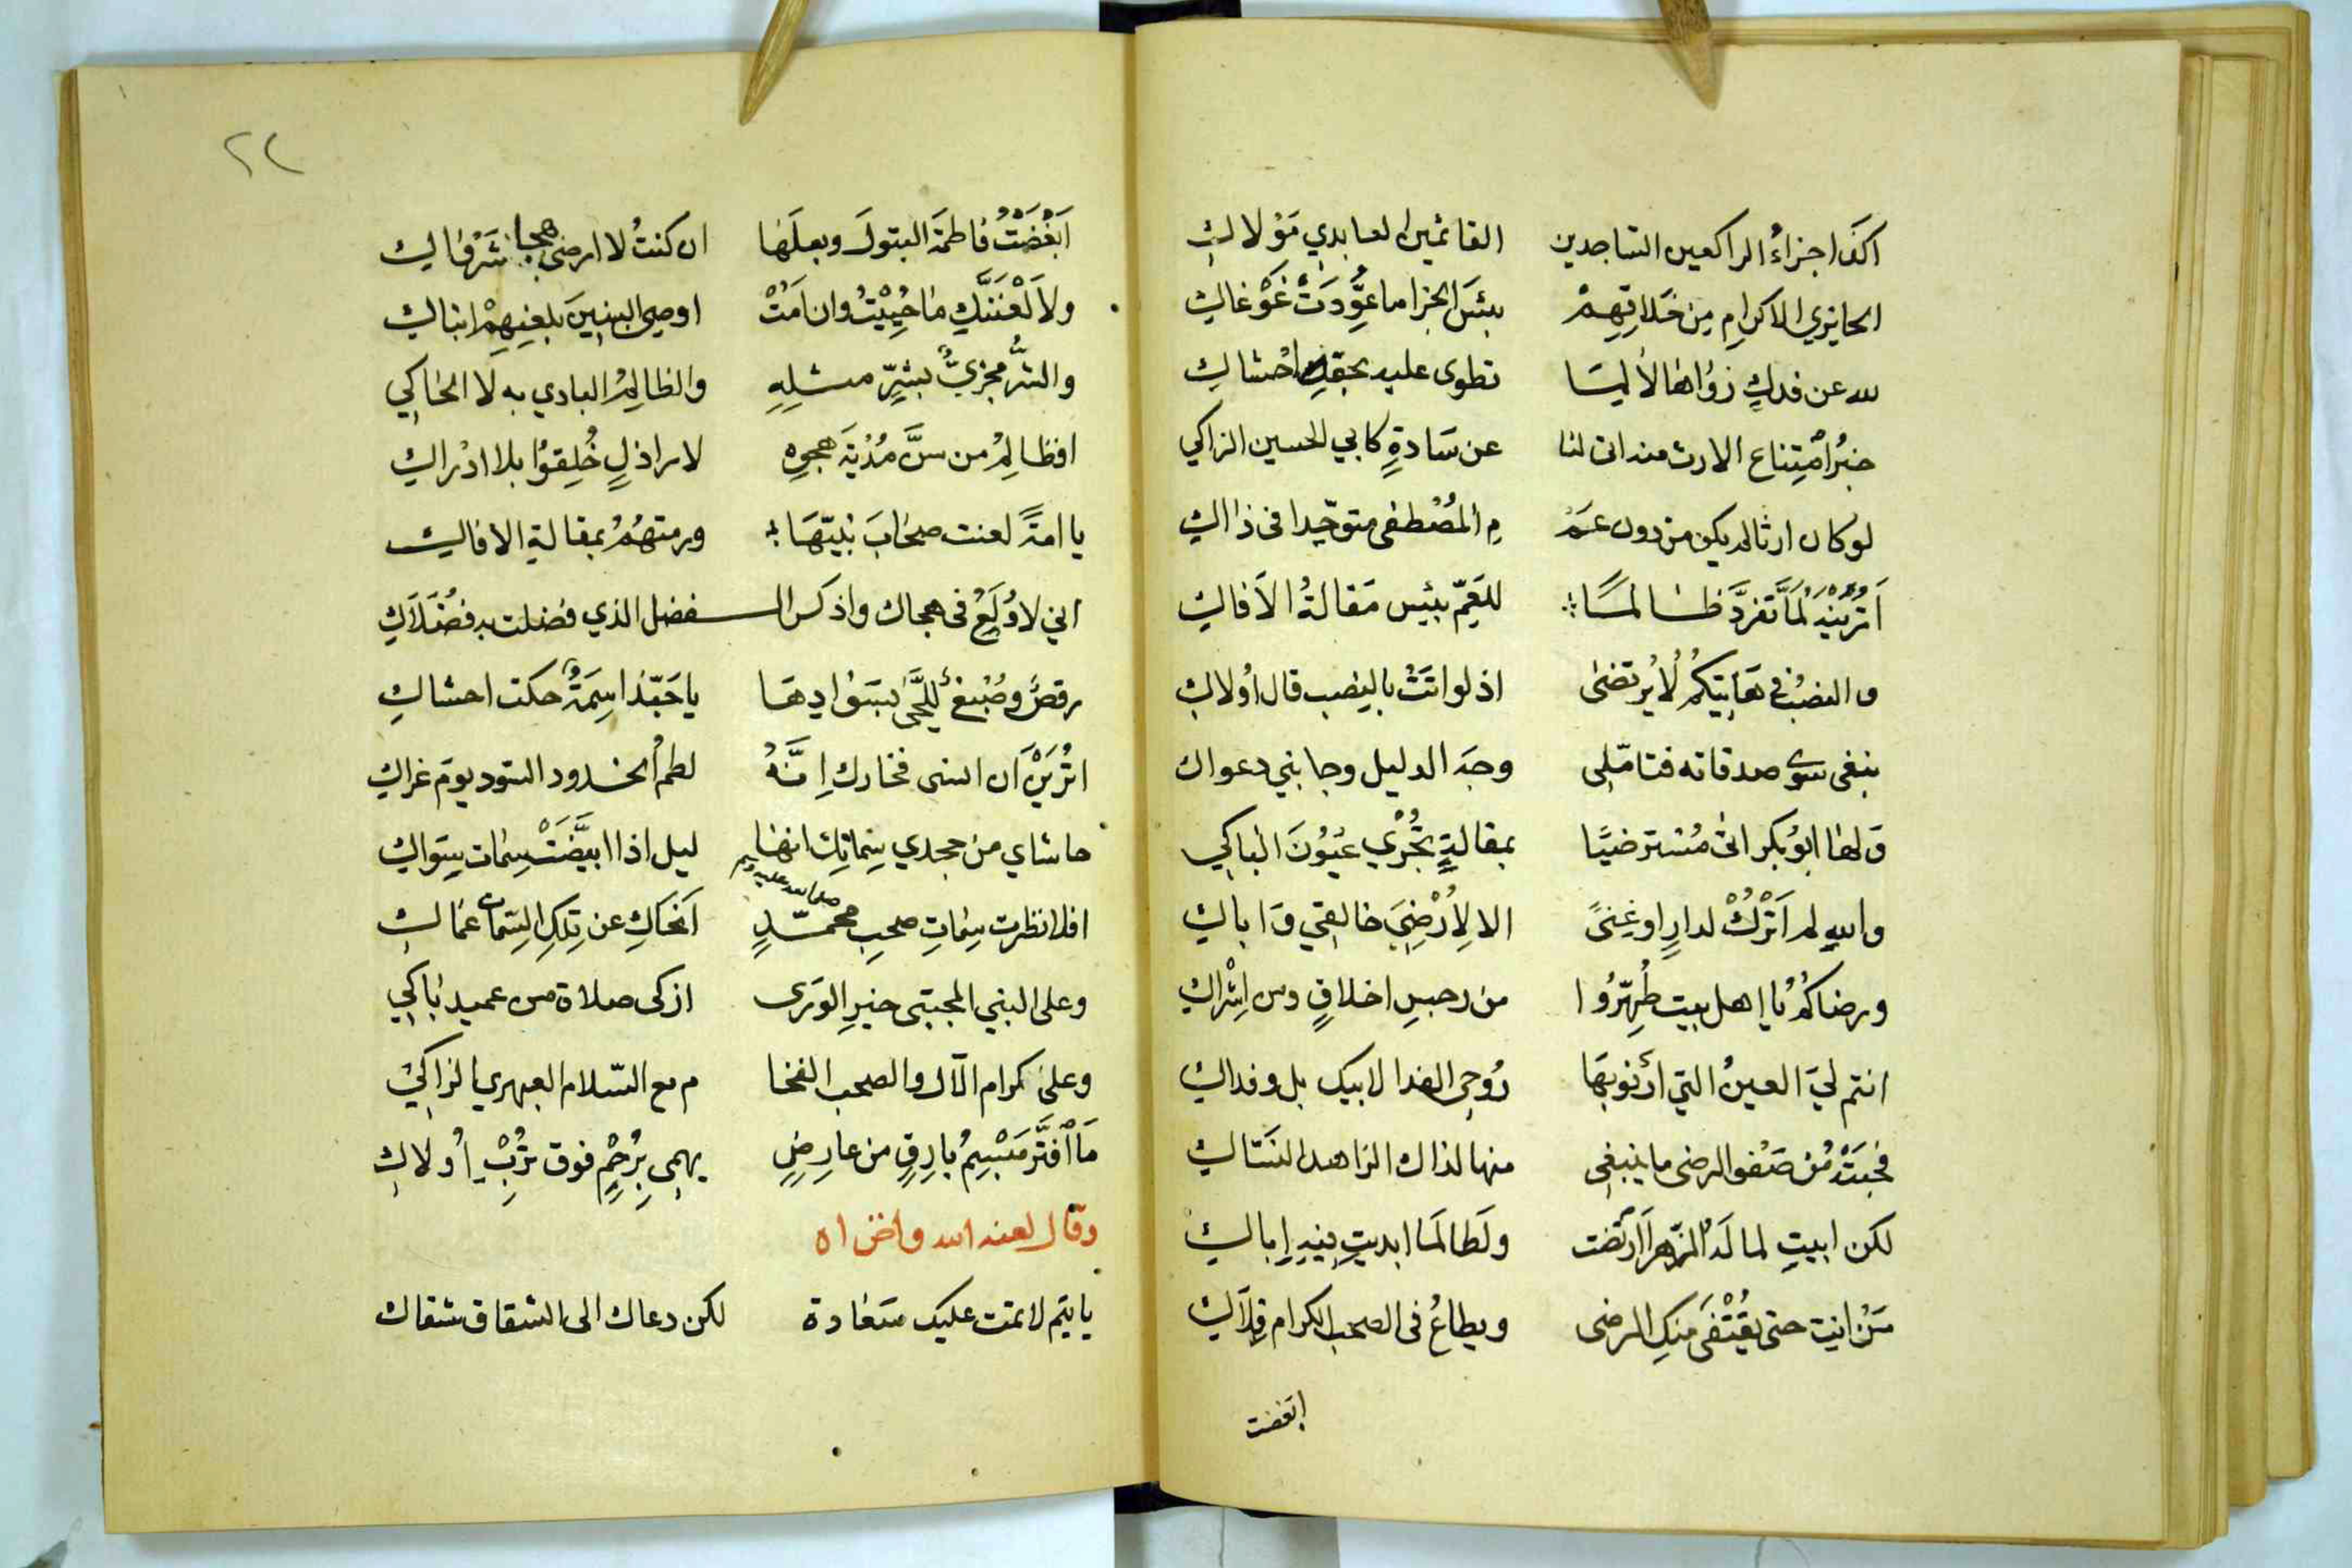 اكذا جزاءُ الراكعين الساجدين القائمين العابدي مَوْلاكِ
الحايزي الاكرامِ مِن خَلاقِهِمْ بئسَ الجزا ما عُوِّدَتْ غَوْغاكِ
لله عن فدكٍ زوُاها لا لِمَا تطوى عليه بحقدها احْشاكِ
خبرُ امْتِناع الارث منه اتى لنا عن سَادةٍ كابي الحسين الزاكي
لو كان ارثا لم يكن من دون عَمْ مِ المُصْطفى متوحّدا في ذاكِ
اَتُرَيْنَهُ لَمَّا تفرَّدَ ظالمًا للعَمِّ بئيس مَقالةُ الاَفاكِ
والغصبُ في هَاتِيكُمُ لا يُرتضى اذ لو اتَتْ بالغصب قال اوُلاكِ
ينبغي سوى صدقاته فتامّلي وجدَ الدليل وجانبي دعواك
وَلها ابوُ بكر اتى مُسْترضيًا بمقالةٍ تُجْري عيُونَ الباكي
والله لم اَتْرُكْ لدارٍ او غِنىً الا لِاُرْضِيَ خالقي وَاباكِ
ورضاكُمُ يا اهل بيت طُهِّرُوا من رجسِ اخلاقٍ ومن اِشْراكِ
انتم ليَ العينُ التي اَرْنوُ بهَا رُوحي الفدا لابيكِ بل وفداكِ
فحبَتْهُ مُن صَفْو الرضى ما ينبغي منها لذاك الزاهد النسَّاكِ
لكن ابيتِ لما لَهُ الزّهرا ارتضت ولَطالَمَا ابديتِ فيهِ اِباكِ
مَنْ انتِ حتى يُقْتَفى مِنكِ الرضى ويطاعُ في الصحب الكرام قِلاكِ
ابغضت
٢٢
اَبْغَضْتُ فاطمةَ البتولَ وبعلَها ان كنتُ لا ارضى هجا شَرْفاكِ
ولاَلْعَنَنَّكِ ما حُيِيْتُ وان اَمُتْ اوصي البنينَ بلعنِهِمْ ابناكِ
والشرُّ مجزيٌّ بشرٍّ مثلِهِ والظالِمُ البادي به لا الحاكي
افظالِمُ من سنَّ مُدْيَةَ هجوِهِ لاراذلٍ خُلِقوُا بلا ادْراكِ
يا امةً لعنت صحابَ نبيّهَا ورمتهُمُ بمقالةِ الافاكِ
اني لاوُلَعُ في هجاك واذكر الـ ـفضل الذي فضلت به فضُلَاكِ
رقصٌ وصَبْغُ لِلُّحَى بسَوَادِهَا يا حَبّذا سِمَةٌ حكت احشاكِ
اتُرَيْنَ ان اسنى فخارك اِنَّهُ لطمُ الخدود السّود يوم غراكِ
حاشاي من جحدي سِماتِكِ انها ليل اذا ابيَضَّتْ سِمات سِوَاكِ
افلا نظرت سِماتِ صحبِ محمّدٍ صلى الله عليه وسلم اَعْمَاكِ عن تِلكِ السِّماتِ عَماكِ
وعلى النبي المجتبى خيرِ الورى ازكى صلاة من عميد باكي
وعلى كرام الآل والصحب الفخا م مع السّلام العبهري الزاكي
مَا افْتَرَّ مَبْسِمُ بارقٍ من عارضٍ يهمي بِرُحْمٍ فوق تُرْبِ اُولاكِ
وقال لعنه الله واخزاه
يا تيم لا تمت عليك سَعادة لكن دعاك الى الشقاق شقاك